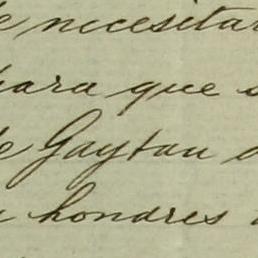 e necesitar
para que s
de Gaytan
hondres